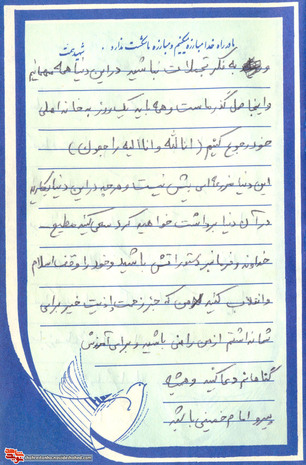 ما در راه خدا مبارزه میکنیم و مبارزه ما شکست ندارد.
شهید محبت
و به فکر تجملات نباشید در این دنیا همه مهمانیم
و اینجا محل گذر ماست و همه باید یک روز به خانه اصلی
خود رجوع کنیم (انا لله و انا الیه راجعون)
این دنیا مزرعه ای بیش نیست و هر چه در این دنیا بکاریم
در آن دنیا برداشت خواهیم کرد سعی کنید مطیع
خداوند و فرمانبر دستوراتش باشید و خود را وقف اسلام
و انقلاب کنید من که جز زحمت و اذیت خیر برای
شما نداشتم از من راضی باشید و برای آمرزش
گناهانم دعا کنید و همیشه
پیرو امام خمینی باشید